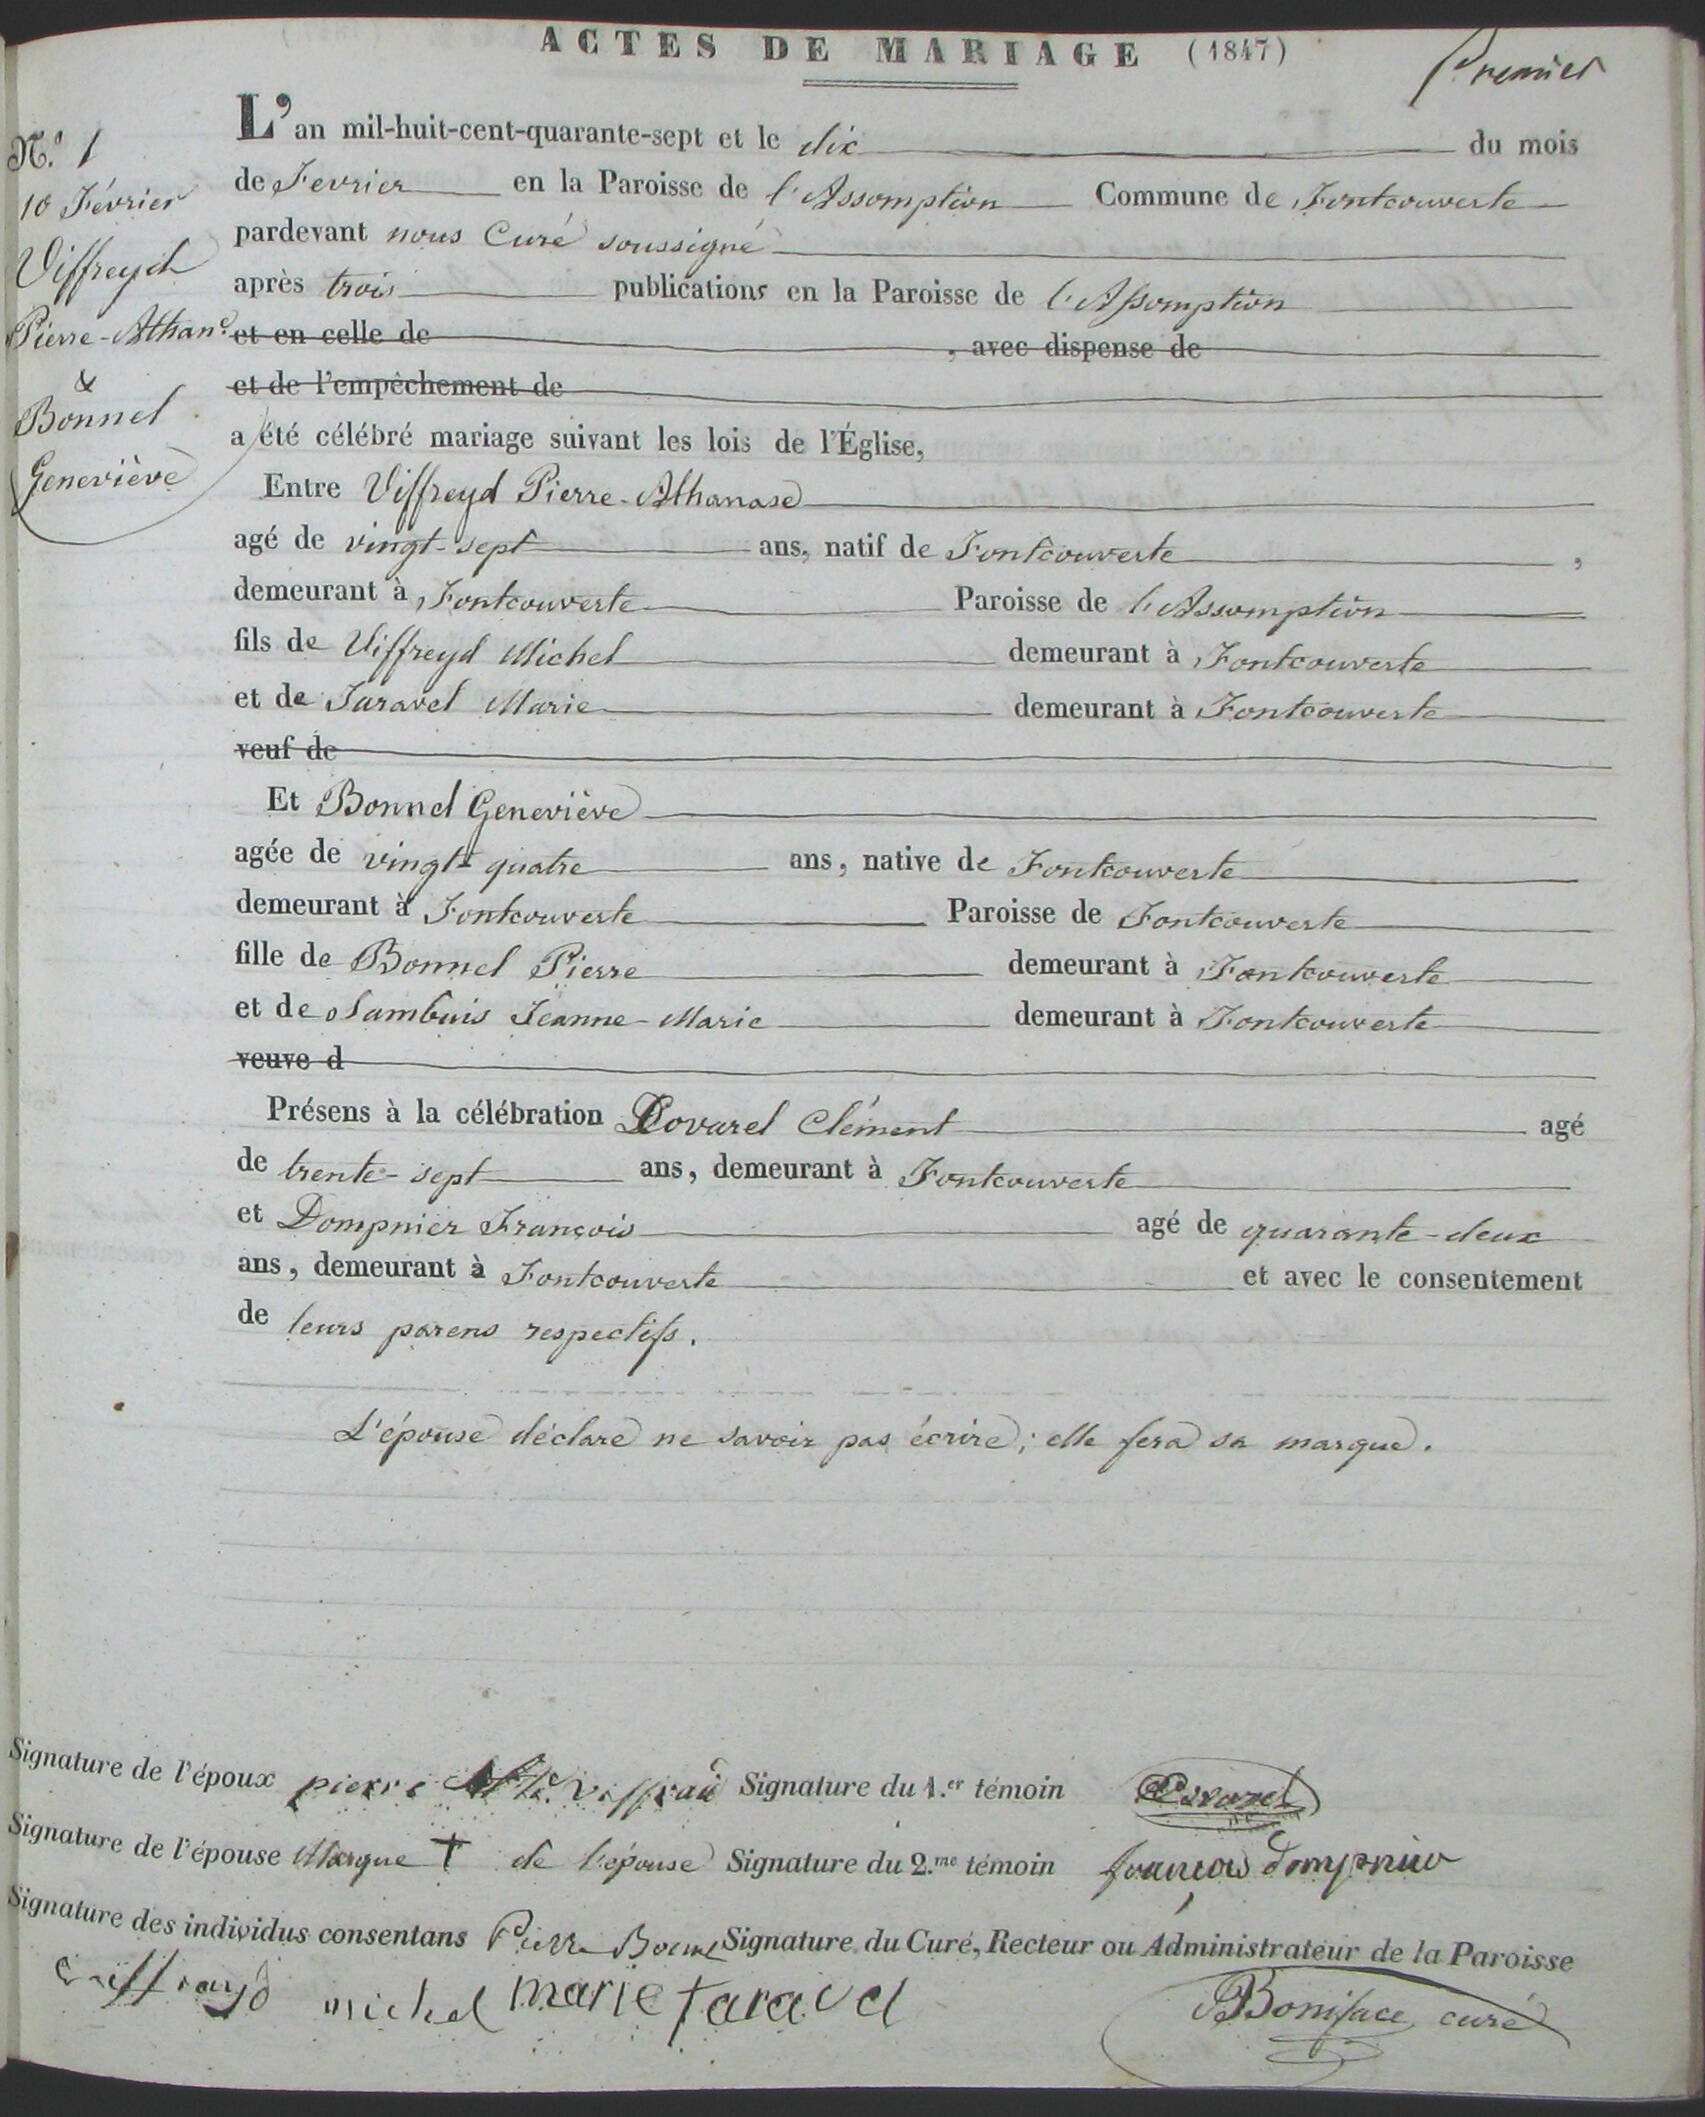 ACTES DE MARIAGE (1847)
Premier
N.° 1
10 Février
Viffreyd
Pierre-Athan.e
&
Bonnel
Geneviève
L'an mil-huit-cent-quarante-sept et le dix du mois
de Fevrier en la Paroisse de l'Assomption Commune de Fontcouverte
pardevant nous Curé soussigné
après trois publications en la Paroisse de l'Assomption
et en celle de , avec dispense de
et de l'empêchement de
a été célébré mariage suivant les lois de l'Église,
Entre Viffreyd Pierre-Athanase
agé de vingt-sept ans, natif de Fontcouverte ,
demeurant à Fontcouverte Paroisse de l'Assomption
fils de Viffreyd Michel demeurant à Fontcouverte
et de Taravel Marie demeurant à Fontcouverte
veuf de
Et Bonnel Geneviève
agée de vingt-quatre ans, native de Fontcouverte
demeurant à Fontcouverte Paroisse de Fontcouverte
fille de Bonnel Pierre demeurant à Fontcouverte
et de Sambuis Jeanne-Marie demeurant à Fontcouverte
veuve d
Présens à la célébration Covarel Clément agé
de trente-sept ans, demeurant à Fontcouverte
et Dompnier François agé de quarante-deux
ans, demeurant à Fontcouverte et avec le consentement
de leurs parens respectifs.
L'épouse déclare ne savoir pas écrire; elle fera sa marque.
Signature de l'époux pierre Ath.e viffraid Signature du 1.er témoin Covarel
Signature de l'épouse Marque + de l'épouse Signature du 2.me témoin françois dompnier
Signature des individus consentans Pierre Bonnel Signature du Curé, Recteur ou Administrateur de la Paroisse
viffrayd michel marie taravel Boniface, curé